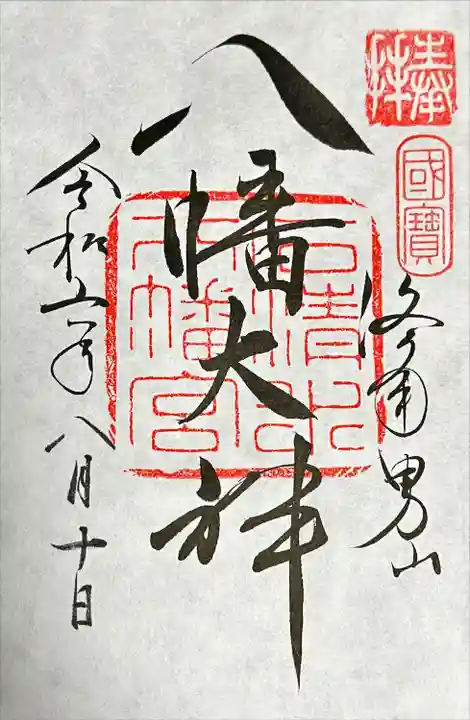 奉拝
國寶
洛南男山
八幡大神
石清水八幡宮
令和六年八月十日